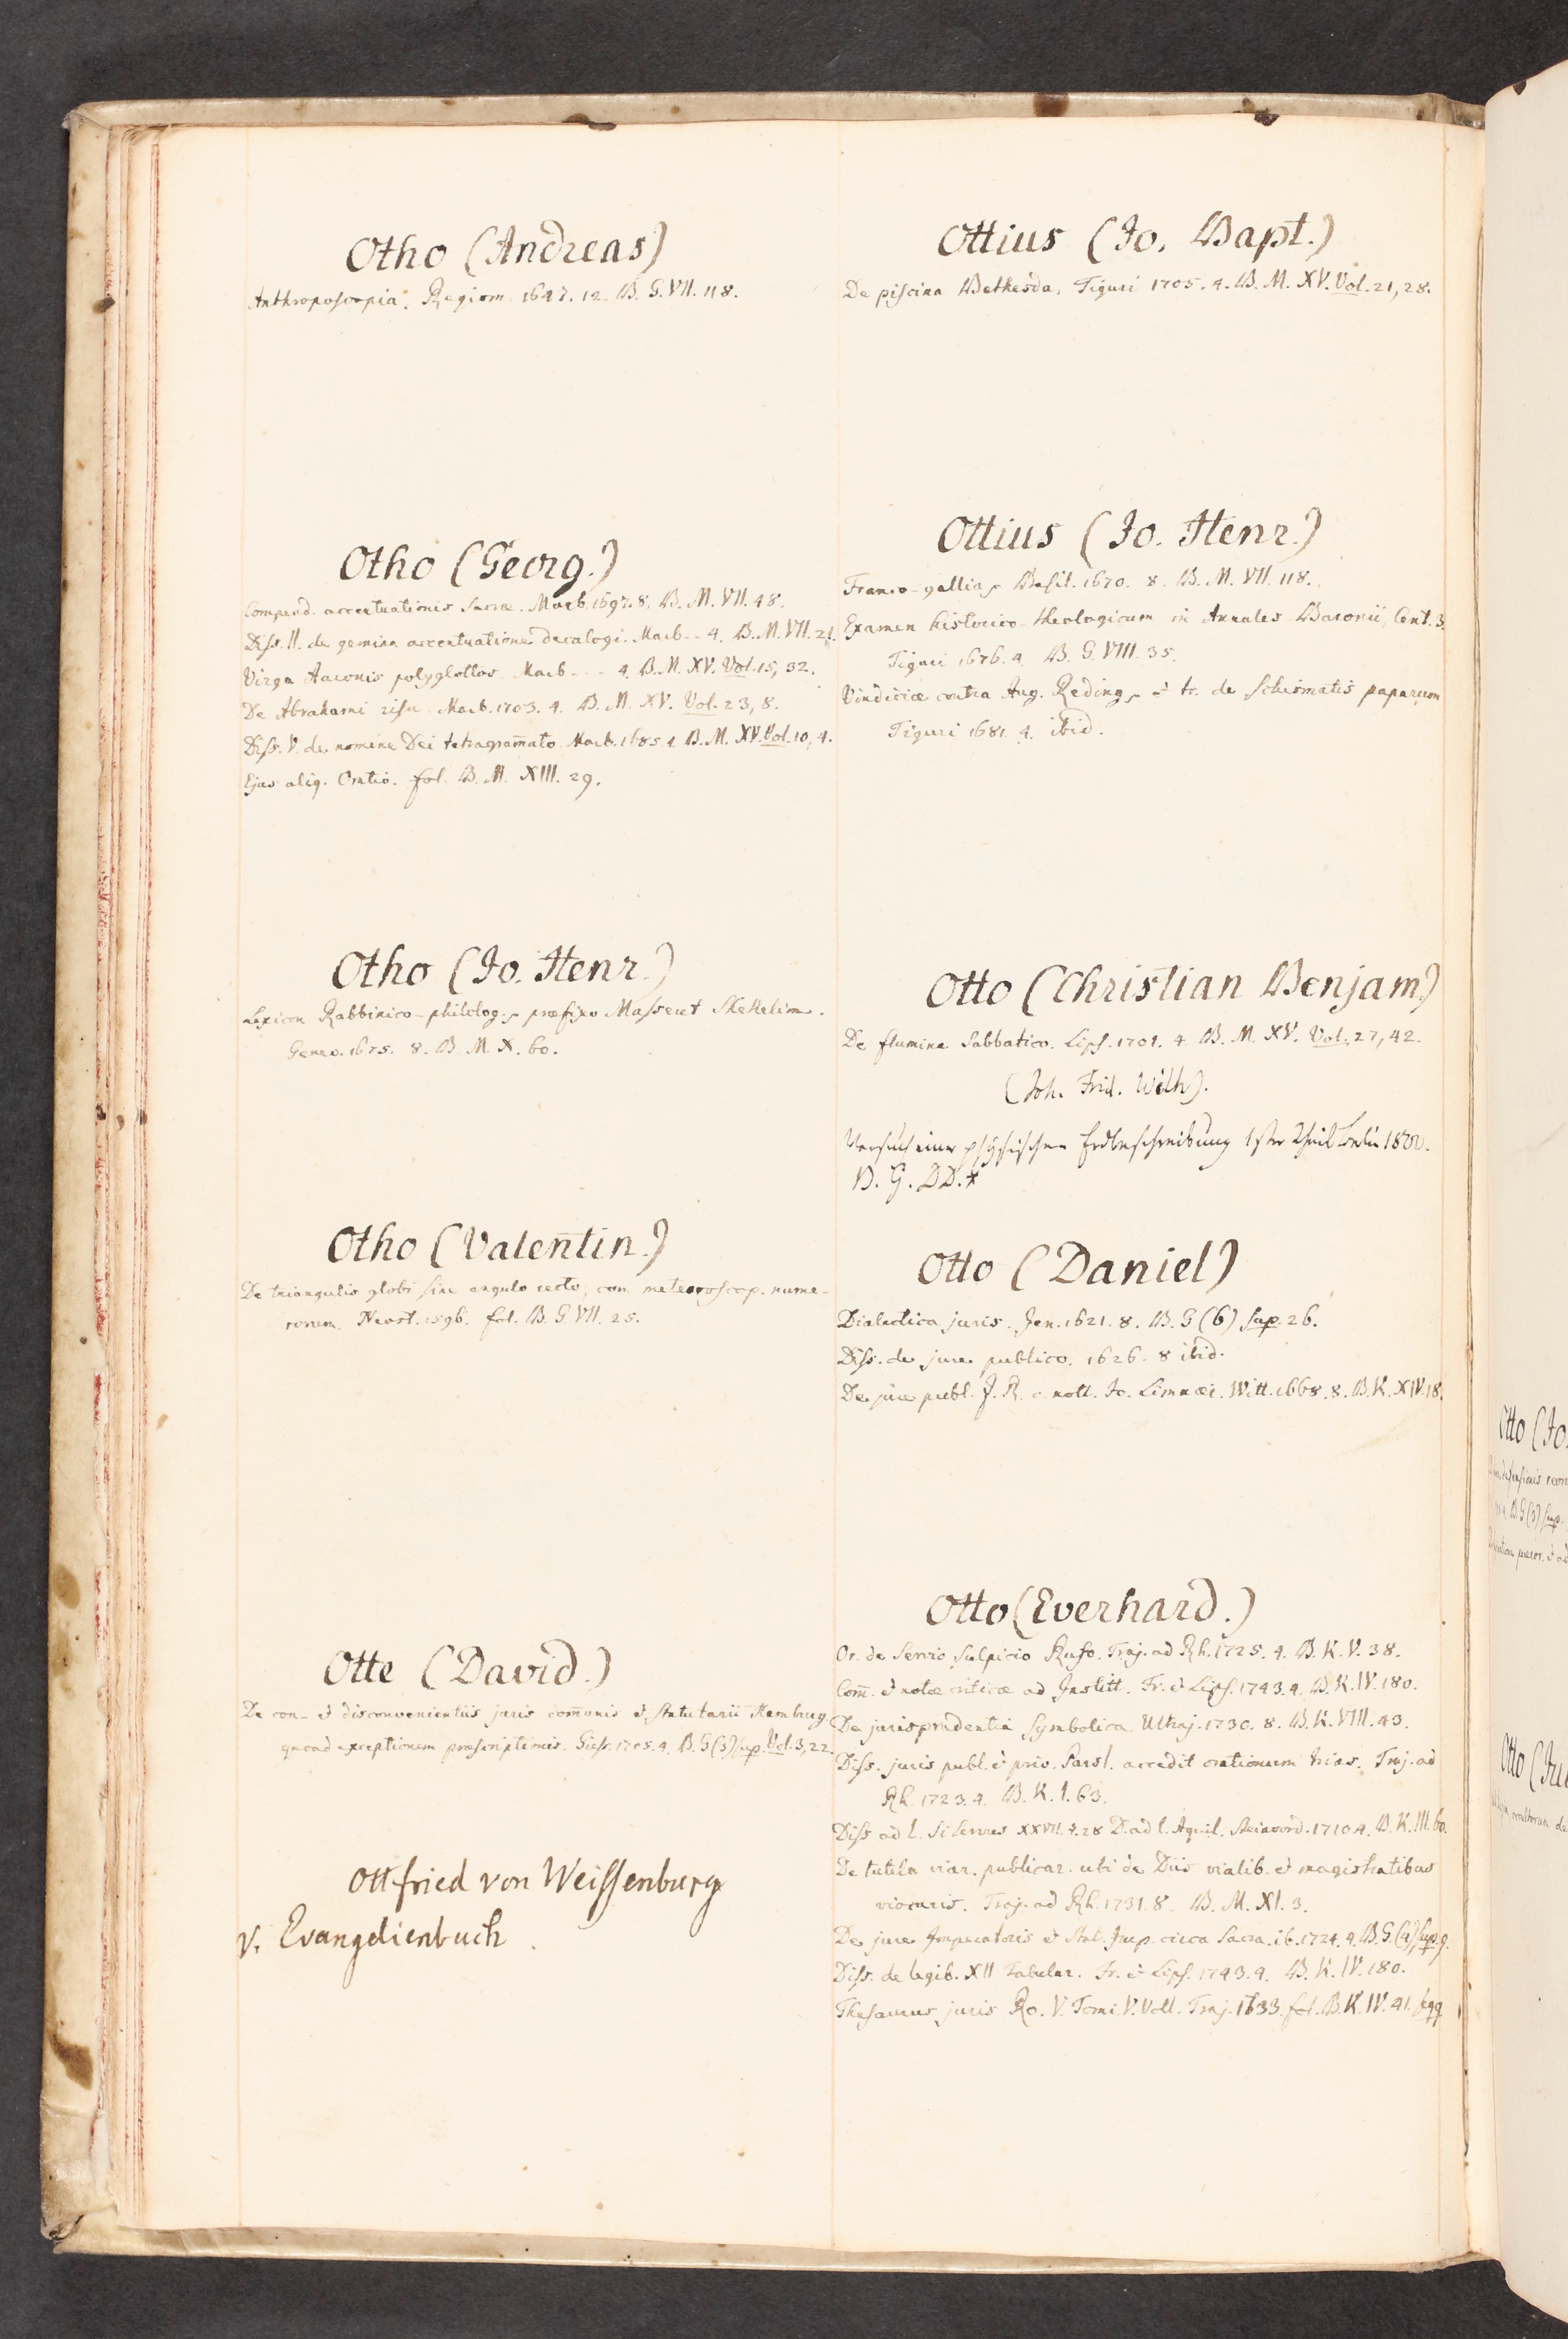 Otho (Andreas)
Anthroposcopia. Regiom. 1647. 12. B. G. VII. 118.
Otho (Georg.)
Compend. accentuationis sacræ. Marb. 1697. 8. B. M. VII. 48.
Diss. II. de gemina accentuatione decalogi. Marb. - - 4. B. M. VII. 21.
Virga Aaronis polyglottos. Marb. - - - 4. B. M. XV. Vol. 15, 32.
De Abrahami risu. Marb. 1703. 4. B. M. XV. Vol. 23, 8.
Diss. V. de nomine Dei tetragram̄ato. Marb. 1685. 4. B. M. XV. Vol. 10, 4.
Ejus aliq. Oratio. fol. B. M. XIII. 29.
Otho (Jo. Henr.)
Lexicon Rabbinico-philolog., præfixo Massecet Shekelim.
Genev. 1675. 8. B. M. X. 60.
Otho (Valentin.)
De triangulis globi sine angulo recto, cum meteoroscop. nume-
rorum. Neost. 1596. fol. B. G. VII. 25.
Otte (David.)
De con- & disconvenientiis juris com̄unis & statutarii Hamburg.
quoad exceptionem præscriptionis. Giess. 1705. 4. B. G (3) sup. Vol. 3, 22.
Ottfried von Weissenburg
v. Evangelienbuch
Ottius (Jo. Bapt.)
De piscina Bethesda. Tiguri 1705. 4. B. M. XV. Vol. 21, 28.
Ottius (Jo. Henr.)
Franco-gallia, Basil. 1670. 8. B. M. VII. 118.
Examen historico-theologicum in Annales Baronii, Cent. 3.
Tiguri 1676. 4. B. G. VIII. 35.
Vindiciæ contra Aug. Reding, & tr. de Schismatis paparum
Tiguri 1681. 4. ibid.
Otto (Christian Benjam.)
De flumine Sabbatico. Lips. 1701. 4. B. M. XV. Vol. 27, 42.
(Joh. Frid. Wilh).
Versuch einer physischen Erdbeschreibung 1ster Theil Berlin 1800.
B. G. DD.
Otto (Daniel)
Dialectica juris. Jen. 1621. 8. B. G (6) sup. 26.
Diss. de jure publico. 1626. 8 ibid.
De jure publ. J. R. c. nott. Jo. Limnæi. Witt. 1668. 8. B. K. XIV. 18.
Otto (Everhard.)
Or. de Servio Sulpicio Rufo. Traj. ad Rh. 1725. 4. B. K. V. 38.
Com̄. & notæ criticæ ad Institt. Fr. & Lips. 1743. 4. B. K. IV. 180.
De jurisprudentia Symbolica. Ultraj. 1730. 8. B. K. VIII. 43.
Diss. juris publ. & priv. Pars I. accedit orationum trias. Traj. ad
Rh. 1723. 4. B. K. I. 63.
Diss ad L. Si servus XXVII. §. 28 D. ad l. Aquil. 1710. 4. B. K. III. 60.
De tutela viar. publicar. ubi de Diis vialib. & magistratibus
viocuris. Traj. ad Rh. 1731. 8. B. M. XI. 3.
De jure Imperatoris & Stat. Imp. circa Sacra. ib. 1724. 4. B. G. (4) sup. 9.
Diss. de legib. XII Tabular. Fr. & Lips. 1743. 4. B. K. IV. 180.
Thesaurus juris Ro. V. Tomi V. Voll. Traj. 1733. fol. B. K. IV. 41. sqq
Otto (Jo.
B. G (3) sup.
Otto